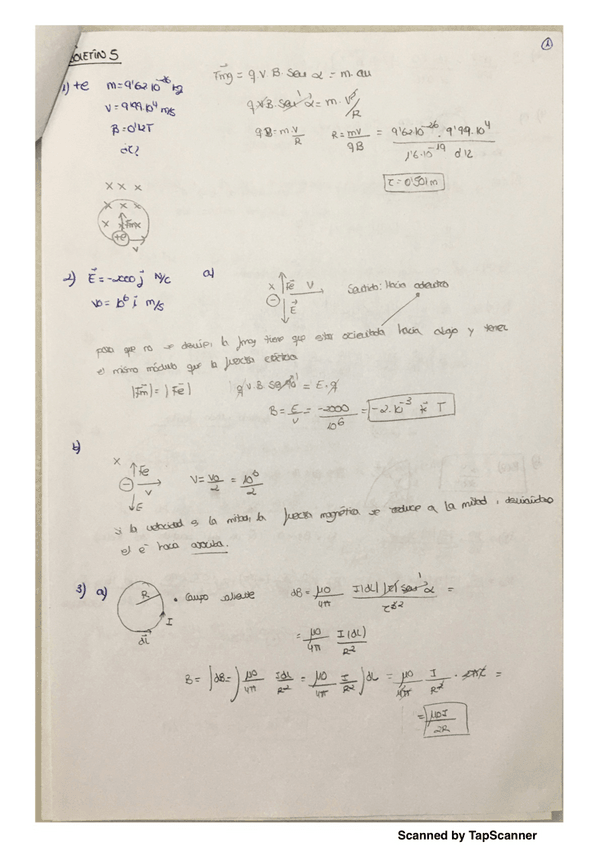 BOLETÍN 5
1) +e m = 9'62·10⁻²⁶ kg
V = 9'99·10⁴ m/s
B = 0'12 T
Fmg = q v B · sen α = m · av
q v B · sen α¹ = m · v²/R
qB = m · v/R R = mv/qB = 9'62·10⁻²⁶ · 9'99·10⁴ / 1'6·10⁻¹⁹ 0'12
x x x
x x x
x x Fm x
+e v
2) E⃗ = -2000 j N/C a) x Fe V Sentido: Hacia adentro
v0 = 10⁶ i m/s − E⃗
para que no se desvíe, la fmg tiene que estar orientada hacia abajo y tener
el mismo módulo que la fuerza eléctrica
|Fm| = |Fe| q · v · B · sen 90¹ = E · q
B = E/v = -2000/10⁶ = -2·10⁻³ k⃗ T
b)
x Fe
− v V = v0/2 = 10⁶/2
E
si la velocidad es la mitad, la fuerza magnética se reduce a la mitad, desviándose
el e⁻ hacia arriba.
3) a) R • Campo saliente dB = μ0/4π I|dL| |r| sen α¹ / r³2 =
I
dl
= μ0/4π I|dL|/R²
B = ∫dB = ∫ μ0/4π IdL/R² = μ0/4π I/R² ∫dL = μ0/4π I/R² · 2πR =
= μ0I/2R
Scanned by TapScanner